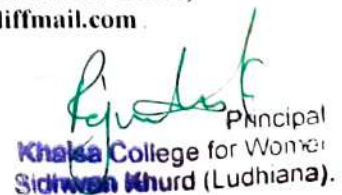 iffmail.com
Principal
Khalsa College for Women
Sidhwan Khurd (Ludhiana).